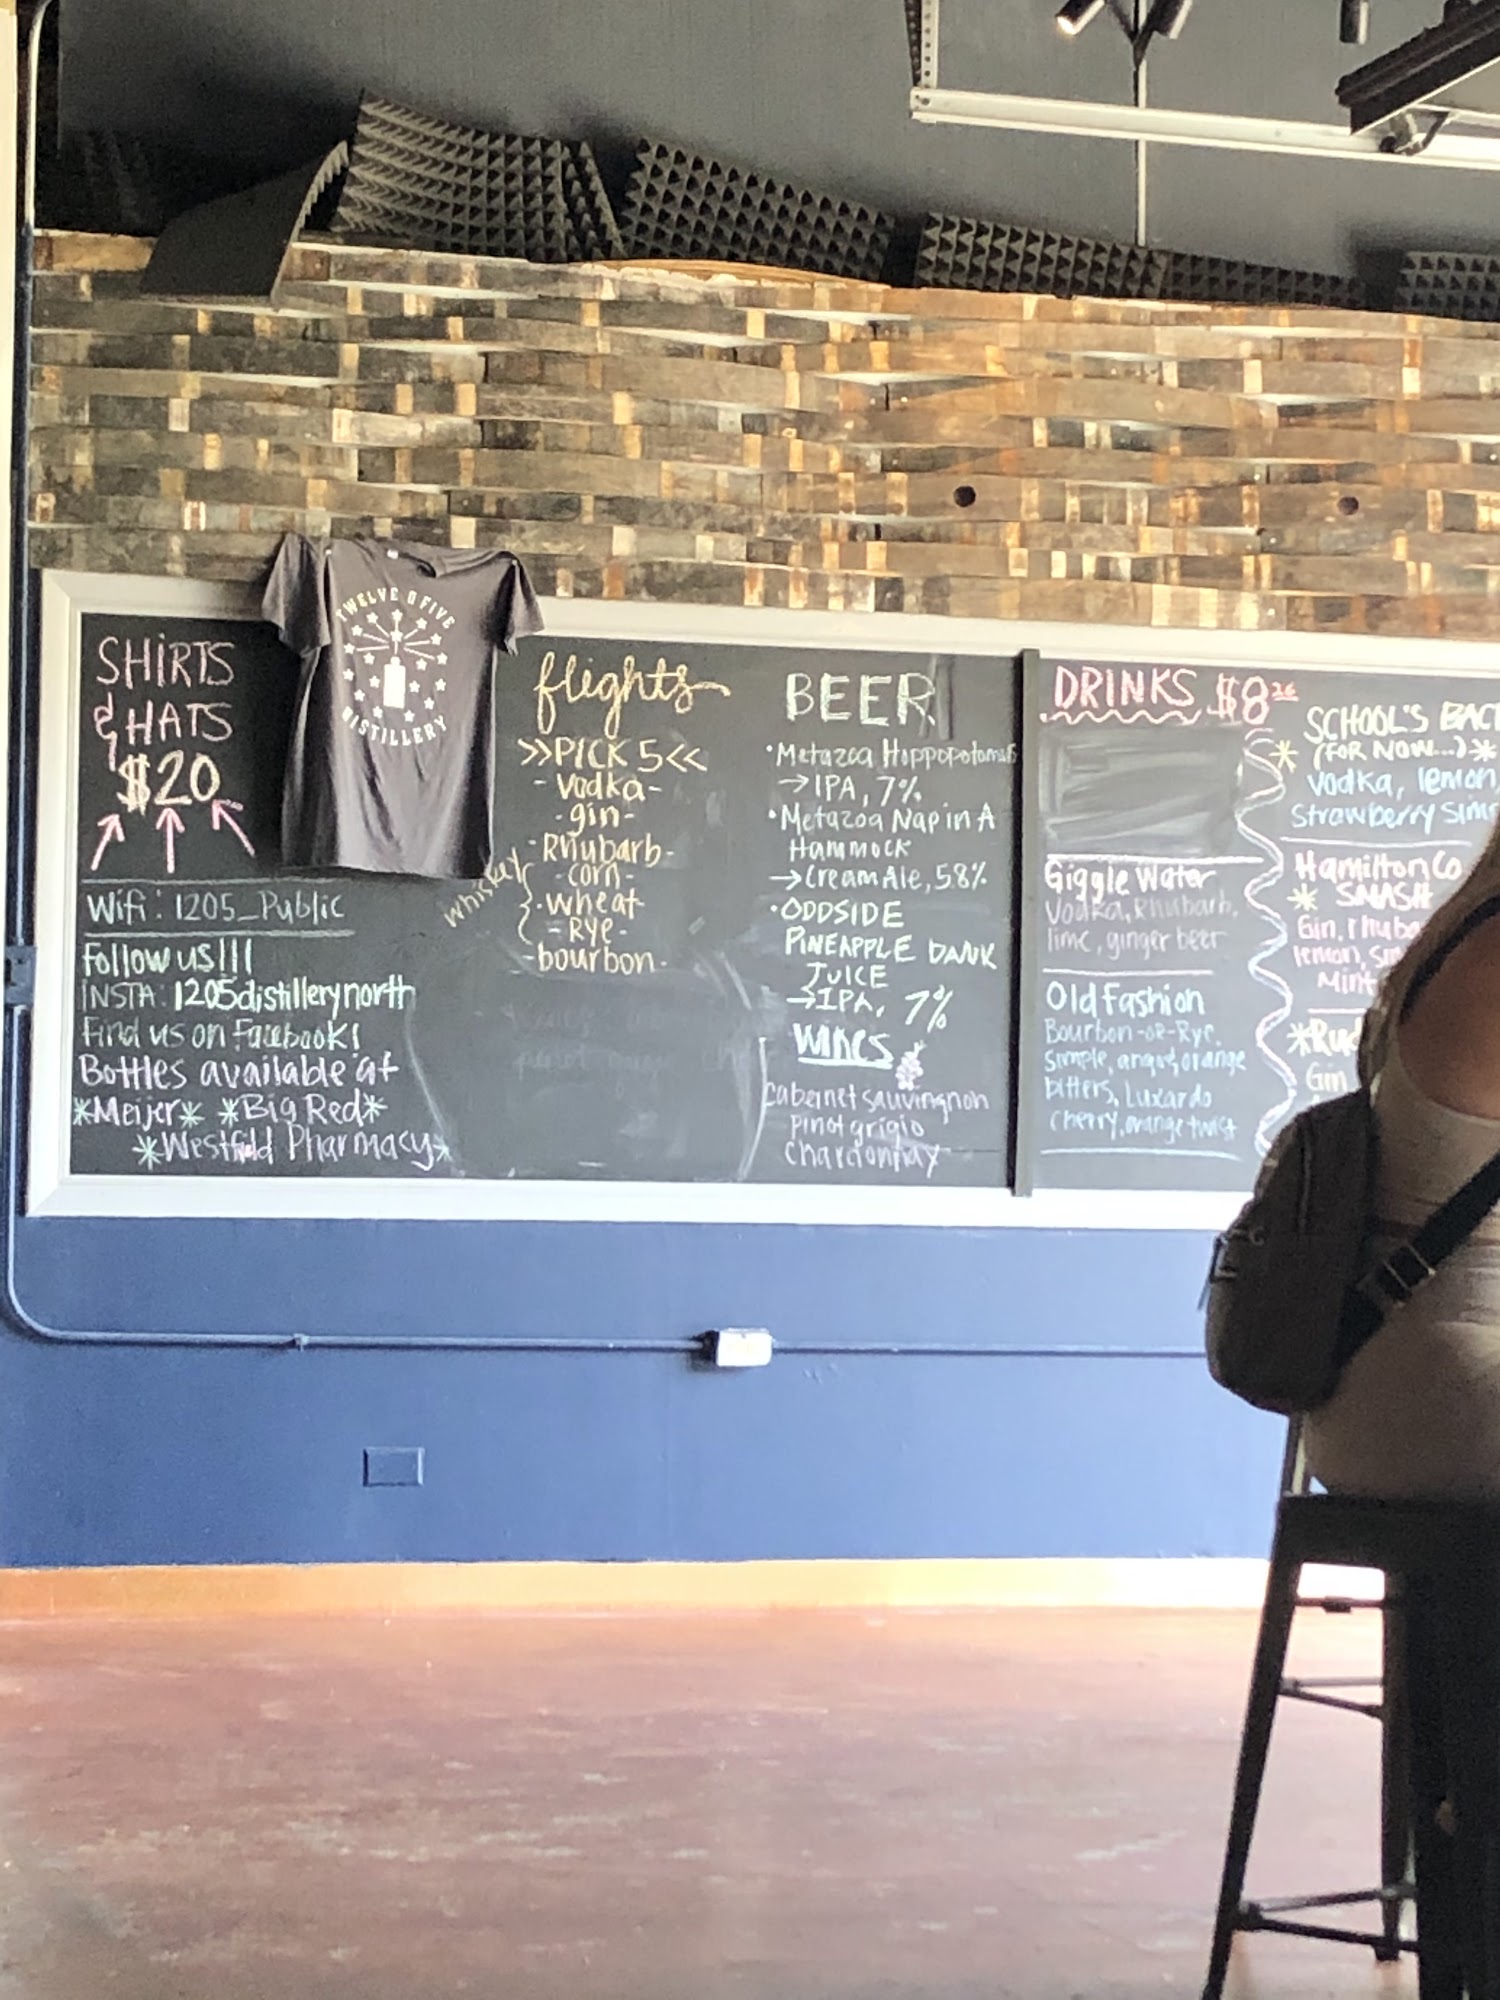 SHIRTS
& HATS
$20
TWELVE O FIVE
DISTILLERY
Wifi: 1205_Public
Follow us!!!
INSTA: 1205distillerynorth
Find us on Facebook!
Bottles available at
*Meijer* *Big Red*
*Westfield Pharmacy*
flights
>>PICK 5<<
- Vodka -
- gin -
- Rhubarb -
whiskey
- corn -
- wheat
- Rye -
- bourbon -
BEER
• Metazoa Hoppopotomus
→ IPA, 7%
• Metazoa Nap in A
Hammock
→ Cream Ale, 5.8%
• ODDSIDE
PINEAPPLE DANK
JUICE
→ IPA, 7%
WINES
Cabernet Sauvingnon
Pinot grigio
Chardonnay
DRINKS $8.26
Giggle Water
Vodka, Rhubarb,
lime, ginger beer
Old Fashion
Bourbon-or-Rye,
Simple, ango, orange
bitters, Luxardo
Cherry, orange twist
SCHOOL'S BAC
* (FOR NOW...) *
Vodka, lemon,
Strawberry Sim
Hamilton Co
* SMASH
Gin, rhuba
lemon, Sim
Mint
Gin